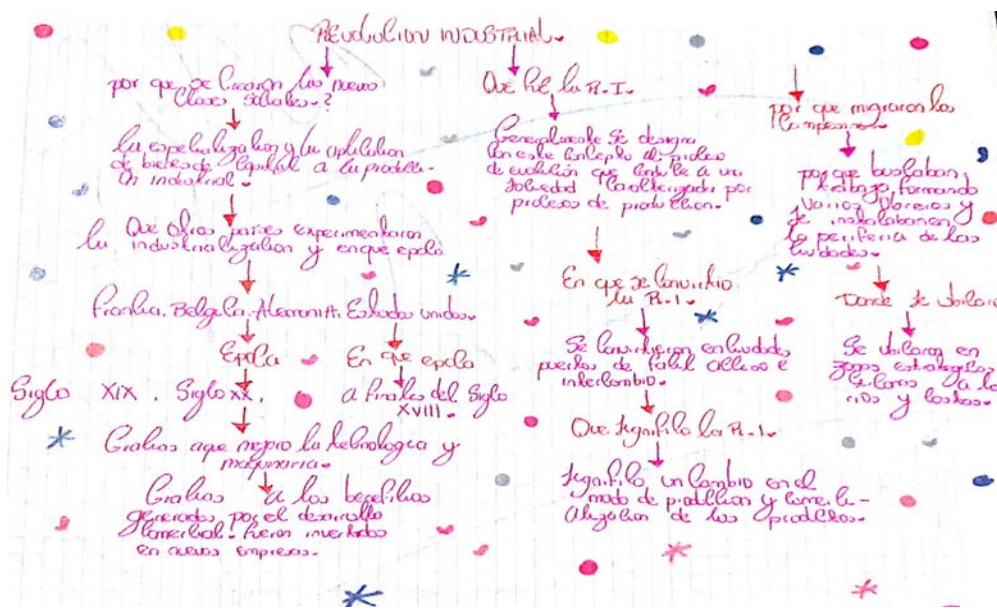 REVOLUCION INDUSTRIAL.
por que se Crearon las nuevas
Clases Sociales.?
la especialización y la aplicación
de bienes de Capital a la producc-
ión industrial.
Que Otros paises experimentaron
la industrialización y en que epoca
Francia. Belgica. Alemania. Estados unidos.
Epoca
Siglo XIX. Siglo XX.
En que epoca
a finales del Siglo
XVIII.
Gracias a que mejoro la tecnologia y
maquinaria.
Gracias a los beneficios
generados por el desarrollo
Comercial. fueron invertidos
en nuevas empresas.
Que fue la R-I.
Generalmente Se designa
con este Concepto al proceso
de evolución que conduce a una
Sociedad Caracterizada por
procesos de producción.
En que se convirtio
la R-I.
Se convirtieron en ciudades
puertos de facil acceso e
intercambio.
Que significo la R-I.
Significo un Cambio en el
modo de producción y comerci-
alización de los productos.
por que migraron los
Campesinos.
por que buscaban
trabajo, formando
varios Obreros y
se instalaban en
la periferia de las
ciudades.
Donde se ubicaron
Se ubicaron en
zonas estrategicas
Cercanas a lo
rios y costas.